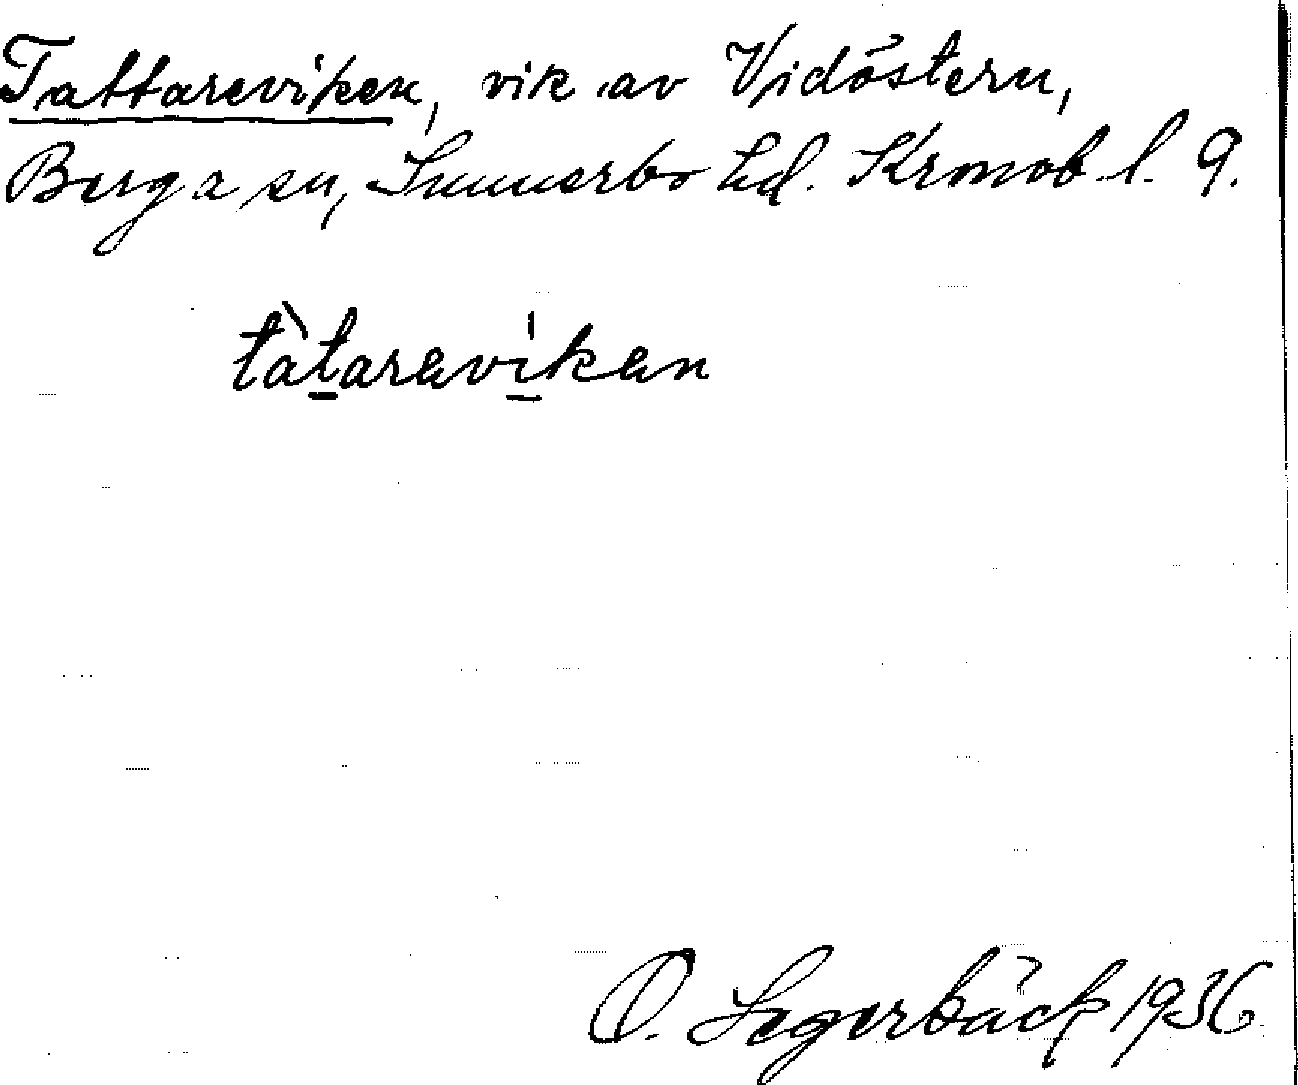 Tattareviken, vik av Vidöstern,
Berga sn, Sunnerbo hd. Kronob. l. 9.
tàtaravikan
O. Segerbäck 1936